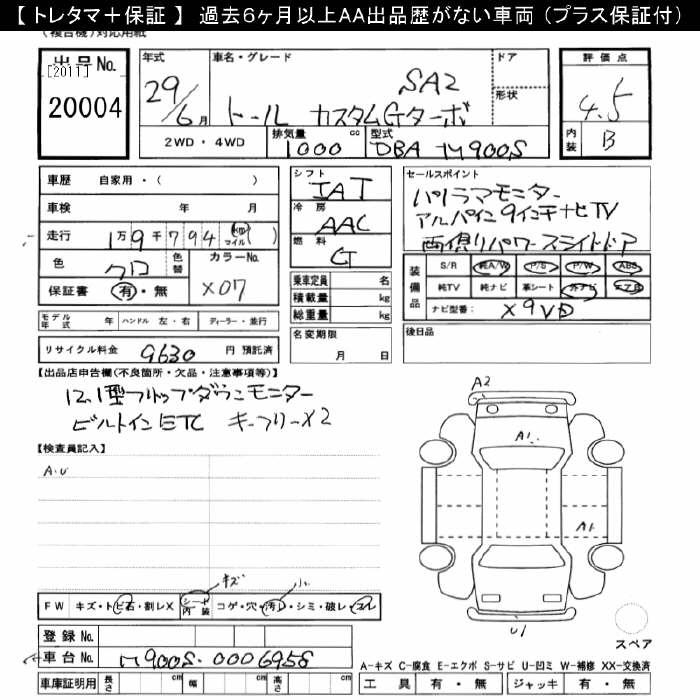 【 トレタマ＋保証 】 過去６ヶ月以上AA出品歴がない車両 (プラス保証付)
(複合機)対応用紙
出品No.
[2011]
20004
年式
29/6月
車名・グレード
SA2
トール カスタムGターボ
ドア
形状
2WD・4WD
排気量 1000 cc
型式 DBA M900S
評価点
4.5
内装 B
車歴 自家用・( )
車検 年 月
走行 1万9千794 km マイル ( )
色 クロ
色替
カラーNo. X07
保証書 有・無
モデル年式 年 ハンドル 左・右 ディーラー・並行
リサイクル料金 9630 円 預託済
シフト IAT
冷房 AAC
燃料 G
乗車定員 名
積載量 kg
総重量 kg
名変期限 月 日
セールスポイント
パノラマモニター
アルパイン9インチナビTV
両側パワースライドドア
装備品
S/R 純A/W P/S P/W ABS
純TV 純ナビ 革シート 外ナビ エアB
ナビ型番: X9VD
後日品
【出品店申告欄(不良箇所・欠品・注意事項等)】
12.1型フリップダウンモニター
ビルトインETC キーフリーX2
【検査員記入】
A.U
キズ 小
FW キズ・トビ石・割レX
シート 内装 コゲ・穴・汚レ・シミ・破レ・コレ
登録No.
車台No. M900S-0006958
車庫証明用 長さ cm 幅 cm 高さ cm
A2
A1
A1
U1
スペア
A-キズ C-腐食 E-エクボ S-サビ U-凹ミ W-補修 XX-交換済
工具 有・無 ジャッキ 有・無